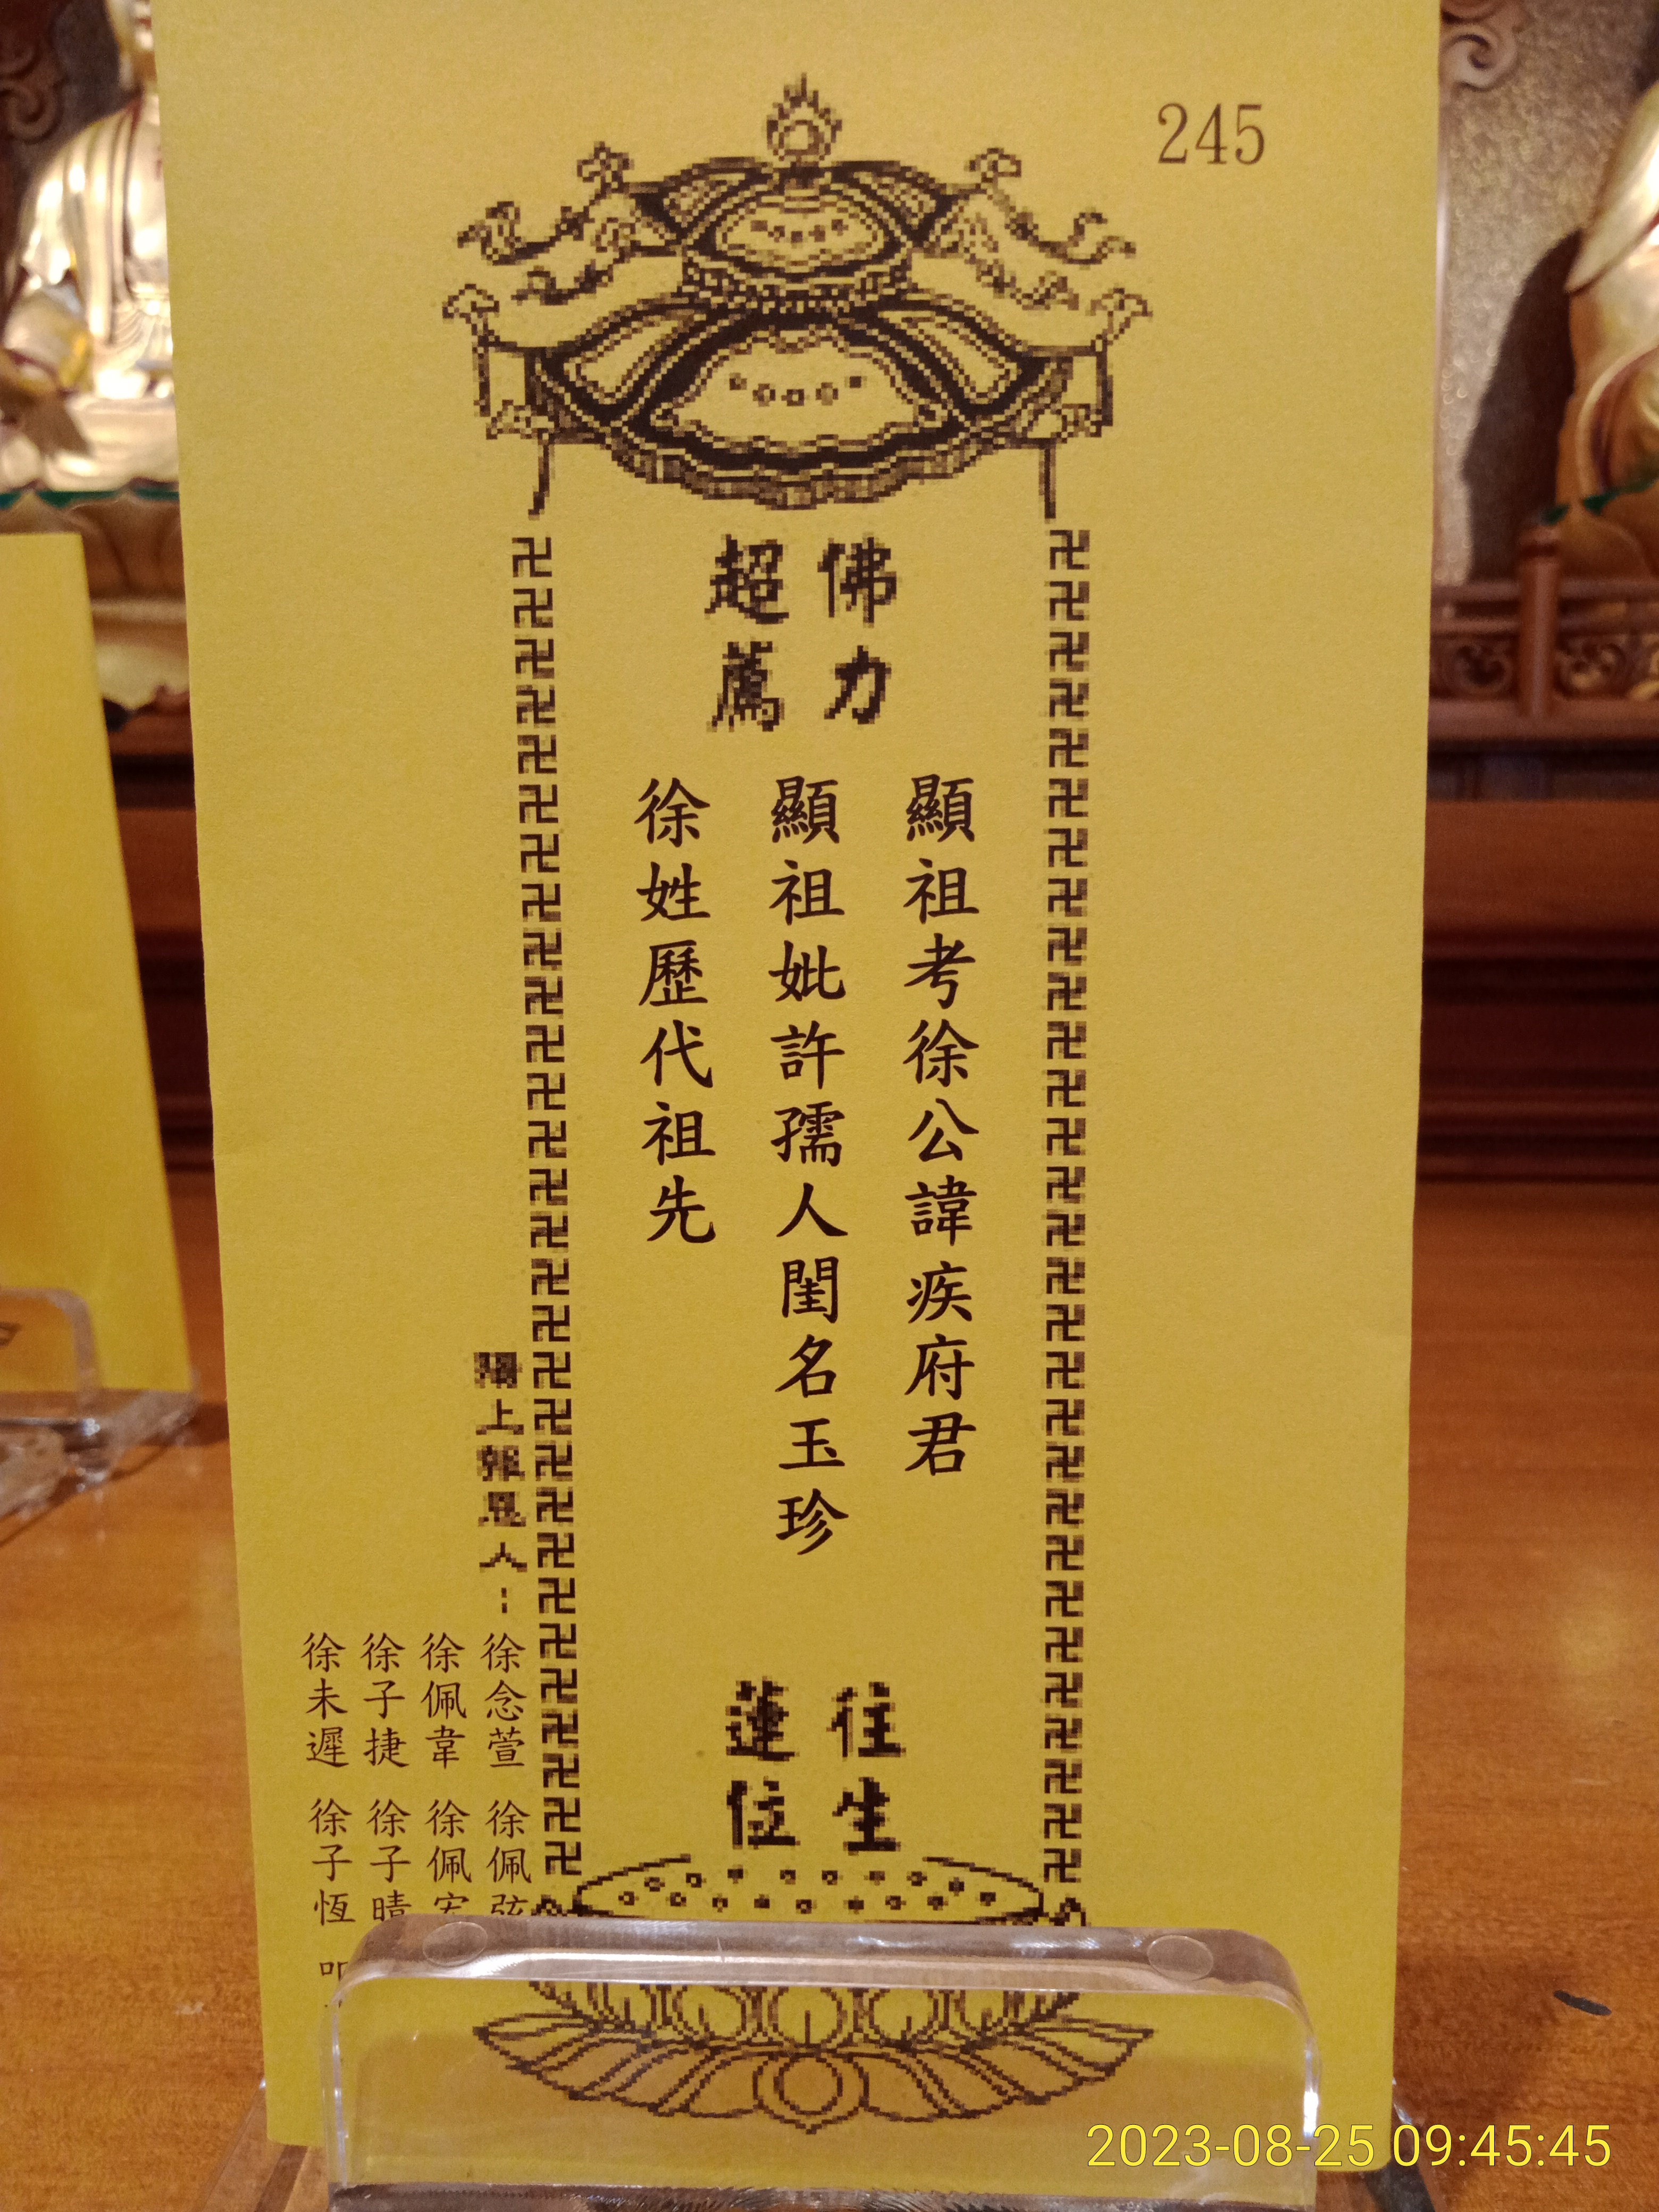 245
佛力
超薦
顯祖考徐公諱疾府君
顯祖妣許孺人閨名玉珍
徐姓歷代祖先
往生
蓮位
陽上報恩人：
徐念萱 徐佩弦
徐佩韋 徐佩宏
徐子捷 徐子晴
徐未遲 徐子恆 叩
2023-08-25 09:45:45